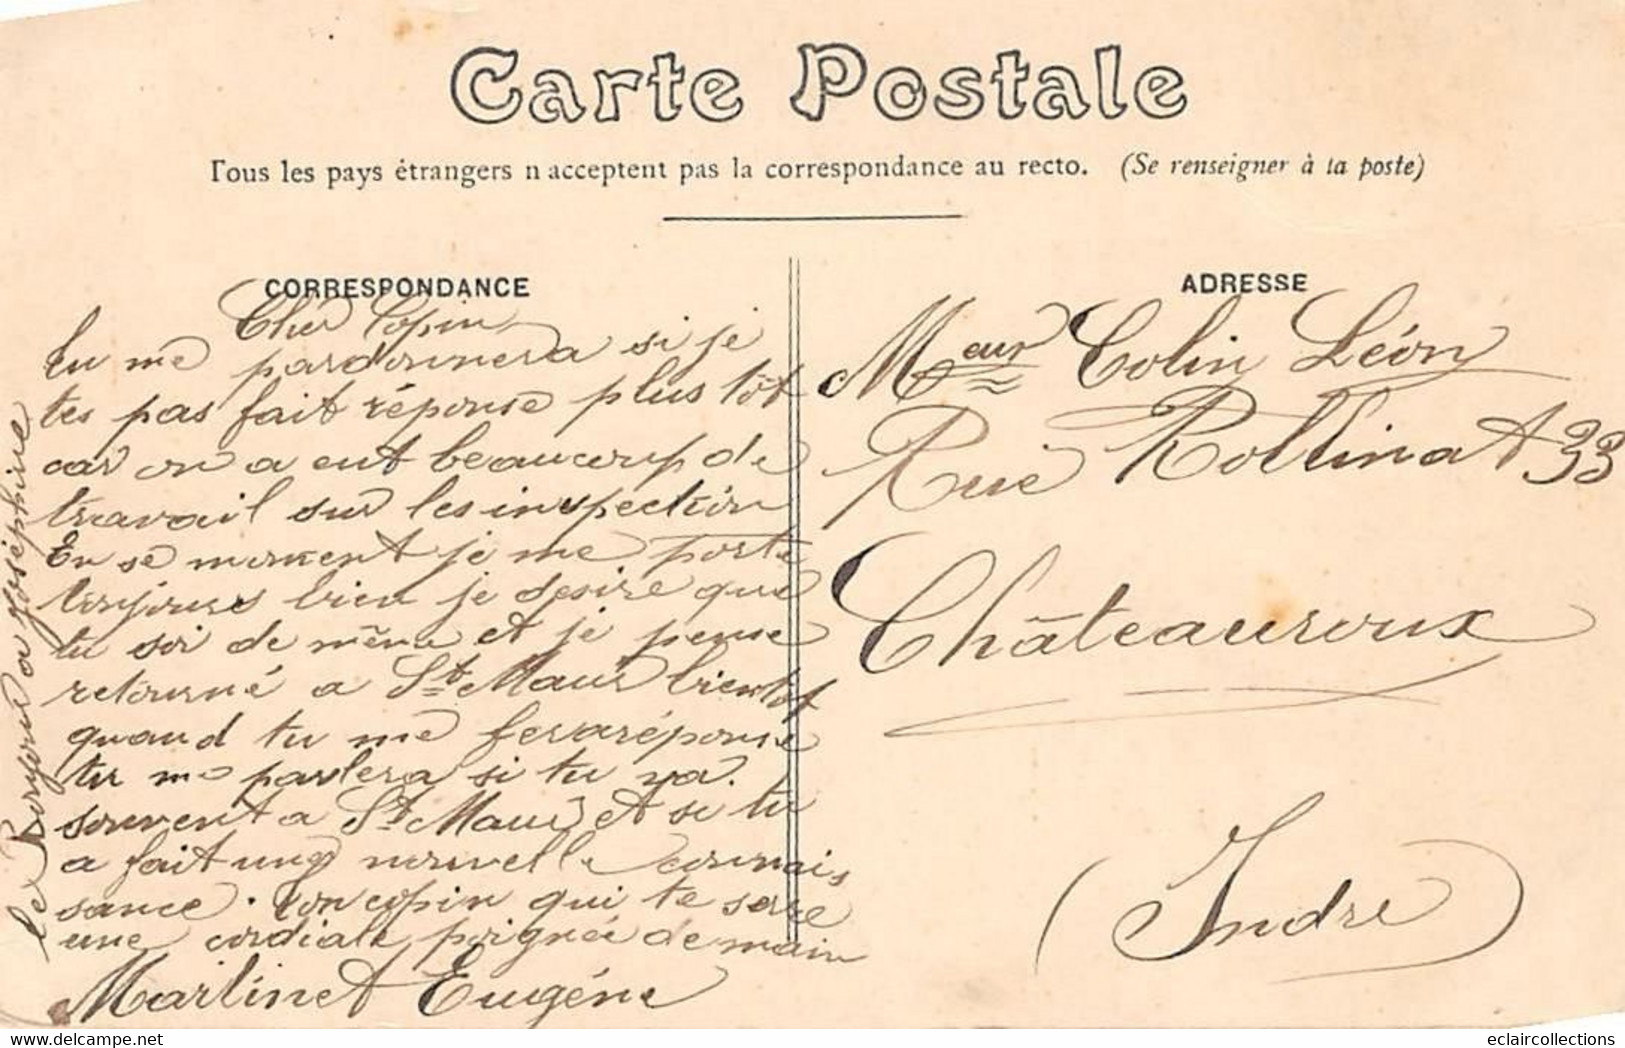 Carte Postale
Tous les pays étrangers n'acceptent pas la correspondance au recto. (Se renseigner à la poste)
CORRESPONDANCE
Cher Copin
tu me pardonnera si je
tes pas fait réponse plus tôt
car on a eut beaucoup de
travail sur les inspection
En se moment je me porte
toujours bien je desire que
tu soi de même et je pense
retourné a St Maur bientot
quand tu me fera réponse
tu me parlera si tu va.
souvent a St Maur et si tu
a fait une nouvelle connais
sance. ton copin qui te serre
une cordiale poignée de main
Martinet Eugéne
le Bonjour a Joséphine
ADRESSE
Meur Colin Léon
Rue Rollinat 33
Châteauroux
(Indre)
www.delcampe.net
eclaircollections